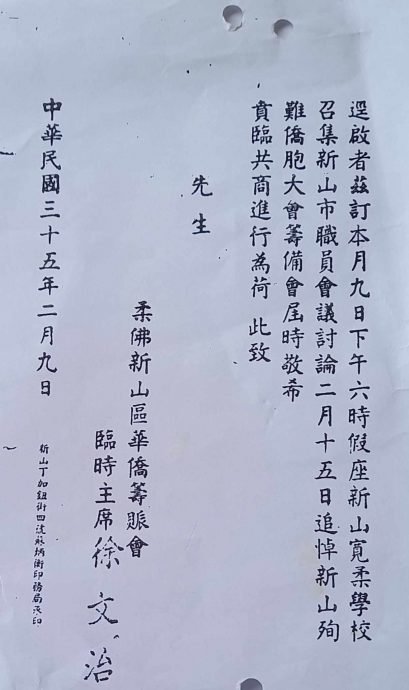 逕啟者茲訂本月九日下午六時假座新山寬柔學校
召集新山市職員會議討論二月十五日追悼新山殉
難僑胞大會籌備會屆時敬希
賁臨共商進行為荷 此致
先生
柔佛新山區華僑籌賑會
臨時主席 徐文治
中華民國三十五年二月九日
新山丁加鈕街四號蘇炳衡印務局承印